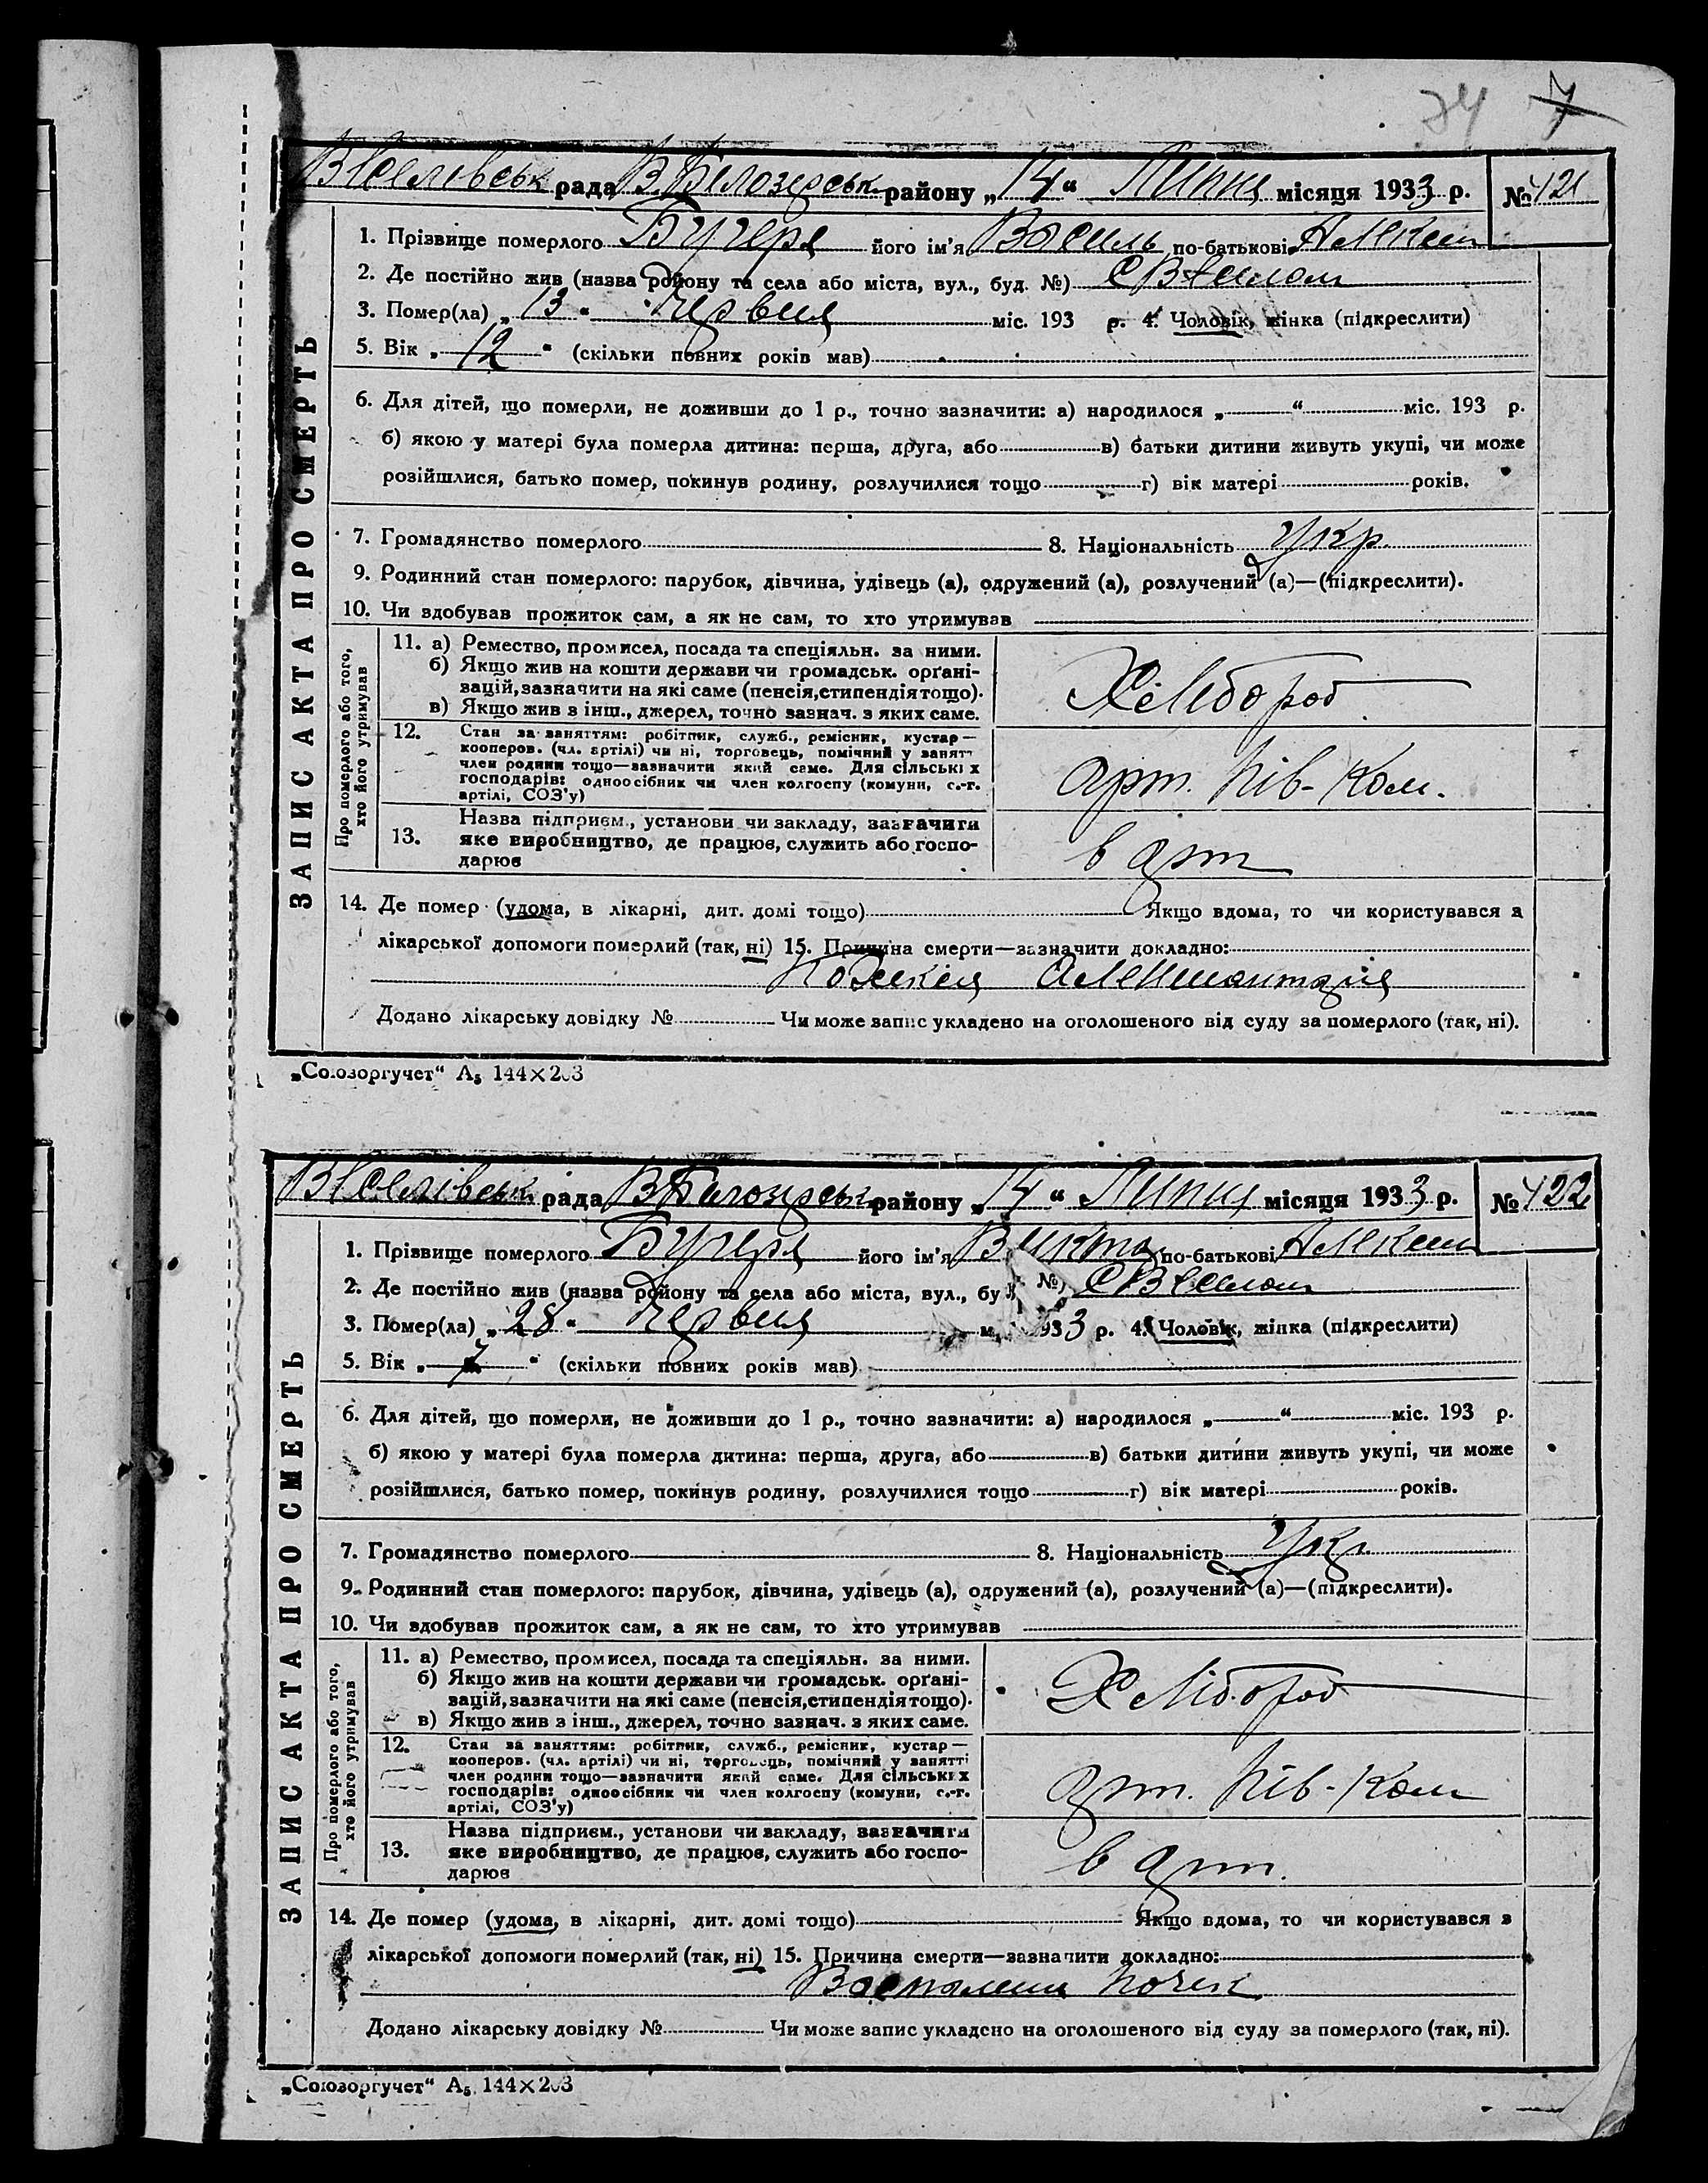 34 7
рада В.Білозирськ району „14“ Липця місяця 1933 р. № 421
1. Прізвище померлого Бугера його ім'я Василь по-батькові Алексеи
2. Де постійно жив (назва району та села або міста, вул., буд. №)
3. Помер(ла) „13“ Червця міс. 193 р. 4. Чоловік, жінка (підкреслити)
5. Вік „12“ (скільки повних років мав)
6. Для дітей, що померли, не доживши до 1 р., точно зазначити: а) народилося „ “ міс. 193 р.
б) якою у матері була померла дитина: перша, друга, або в) батьки дитини живуть укупі, чи може
розійшлися, батько помер, покинув родину, розлучилися тощо г) вік матері років.
7. Громадянство померлого 8. Національність Укр.
9. Родинний стан померлого: парубок, дівчина, удівець (а), одружений (а), розлучений (а)—(підкреслити).
10. Чи здобував прожиток сам, а як не сам, то хто утримував
ЗАПИС АКТА ПРО СМЕРТЬ
Про померлого або того,
хто його утримував
11. а) Ремество, промисел, посада та спеціяльн. за ними.
б) Якщо жив на кошти держави чи громадськ. орґані-
зацій, зазначити на які саме (пенсія, стипендія тощо).
в) Якщо жив з інш., джерел, точно зазнач. з яких саме.
Хлібороб
12. Стан за заняттям: робітник, служб., ремісник, кустар—
кооперов. (чл. артілі) чи ні, торговець, помічний у занятт
член родини тощо—зазначити який саме. Для сільських
господарів: одноосібник чи член колгоспу (комуни, с.-г.
артілі, СОЗ'у)
арт. Нів-Ком.
13. Назва підприєм., установи чи закладу, зазначити
яке виробництво, де працює, служить або госпо-
дарює
в арт
14. Де помер (удома, в лікарні, дит. домі тощо) Якщо вдома, то чи користувався з
лікарської допомоги померлий (так, ні) 15. Причина смерти—зазначити докладно:
Додано лікарську довідку № Чи може запис укладено на оголошеного від суду за померлого (так, ні).
„Союзоргучет“ А₅ 144×203
рада В.Білозирськ району „14“ Липця місяця 1933 р. № 422
1. Прізвище померлого Бугера його ім'я по-батькові Алексеи
2. Де постійно жив (назва району та села або міста, вул., бу №)
3. Помер(ла) „28“ Червця м 933 р. 4. Чоловік, жінка (підкреслити)
5. Вік „7“ (скільки повних років мав)
6. Для дітей, що померли, не доживши до 1 р., точно зазначити: а) народилося „ “ міс. 193 р.
б) якою у матері була померла дитина: перша, друга, або в) батьки дитини живуть укупі, чи може
розійшлися, батько помер, покинув родину, розлучилися тощо г) вік матері років.
7. Громадянство померлого 8. Національність Укр.
9. Родинний стан померлого: парубок, дівчина, удівець (а), одружений (а), розлучений (а)—(підкреслити).
10. Чи здобував прожиток сам, а як не сам, то хто утримував
ЗАПИС АКТА ПРО СМЕРТЬ
Про померлого або того,
хто його утримував
11. а) Ремество, промисел, посада та спеціяльн. за ними.
б) Якщо жив на кошти держави чи громадськ. орґані-
зацій, зазначити на які саме (пенсія, стипендія тощо).
в) Якщо жив з інш., джерел, точно зазнач. з яких саме.
Хлібороб
12. Стан за заняттям: робітник, служб., ремісник, кустар—
кооперов. (чл. артілі) чи ні, торговець, помічний у занятті
член родини тощо—зазначити який саме. Для сільських
господарів: одноосібник чи член колгоспу (комуни, с.-г.
артілі, СОЗ'у)
арт. Нів-Ком
13. Назва підприєм., установи чи закладу, зазначити
яке виробництво, де працює, служить або госпо-
дарює
в арт.
14. Де помер (удома, в лікарні, дит. домі тощо) Якщо вдома, то чи користувався з
лікарської допомоги померлий (так, ні) 15. Причина смерти—зазначити докладно:
Воспалениа почек
Додано лікарську довідку № Чи може запис укладено на оголошеного від суду за померлого (так, ні).
„Союзоргучет“ А₅ 144×203